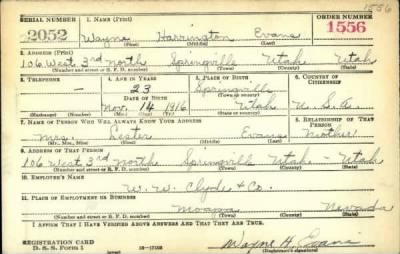 1556
SERIAL NUMBER 1. NAME (Print) ORDER NUMBER
2052 Wayne Harrington Evans 1556
(First) (Middle) (Last)
2. ADDRESS (Print)
106 West 3rd North Springville Utah Utah
(Number and street or R. F. D. number) (Town) (County) (State)
3. TELEPHONE 4. AGE IN YEARS 5. PLACE OF BIRTH 6. COUNTRY OF CITIZENSHIP
— 23 Springville
DATE OF BIRTH (Town or county)
Nov. 14 1916 Utah U. S. A.
(Exchange) (Number) (Mo.) (Day) (Yr.) (State or country)
7. NAME OF PERSON WHO WILL ALWAYS KNOW YOUR ADDRESS 8. RELATIONSHIP OF THAT PERSON
Mrs. Lester Evans Mother
(Mr., Mrs., Miss) (First) (Middle) (Last)
9. ADDRESS OF THAT PERSON
106 West 3rd North Springville Utah - Utah
(Number and street or R. F. D. number) (Town) (County) (State)
10. EMPLOYER'S NAME
W. W. Clyde & Co.
11. PLACE OF EMPLOYMENT OR BUSINESS
Moapa Nevada
(Number and street or R. F. D. number) (Town) (County) (State)
I AFFIRM THAT I HAVE VERIFIED ABOVE ANSWERS AND THAT THEY ARE TRUE.
REGISTRATION CARD
D. S. S. Form 1 Wayne H. Evans
(Registrant's signature)